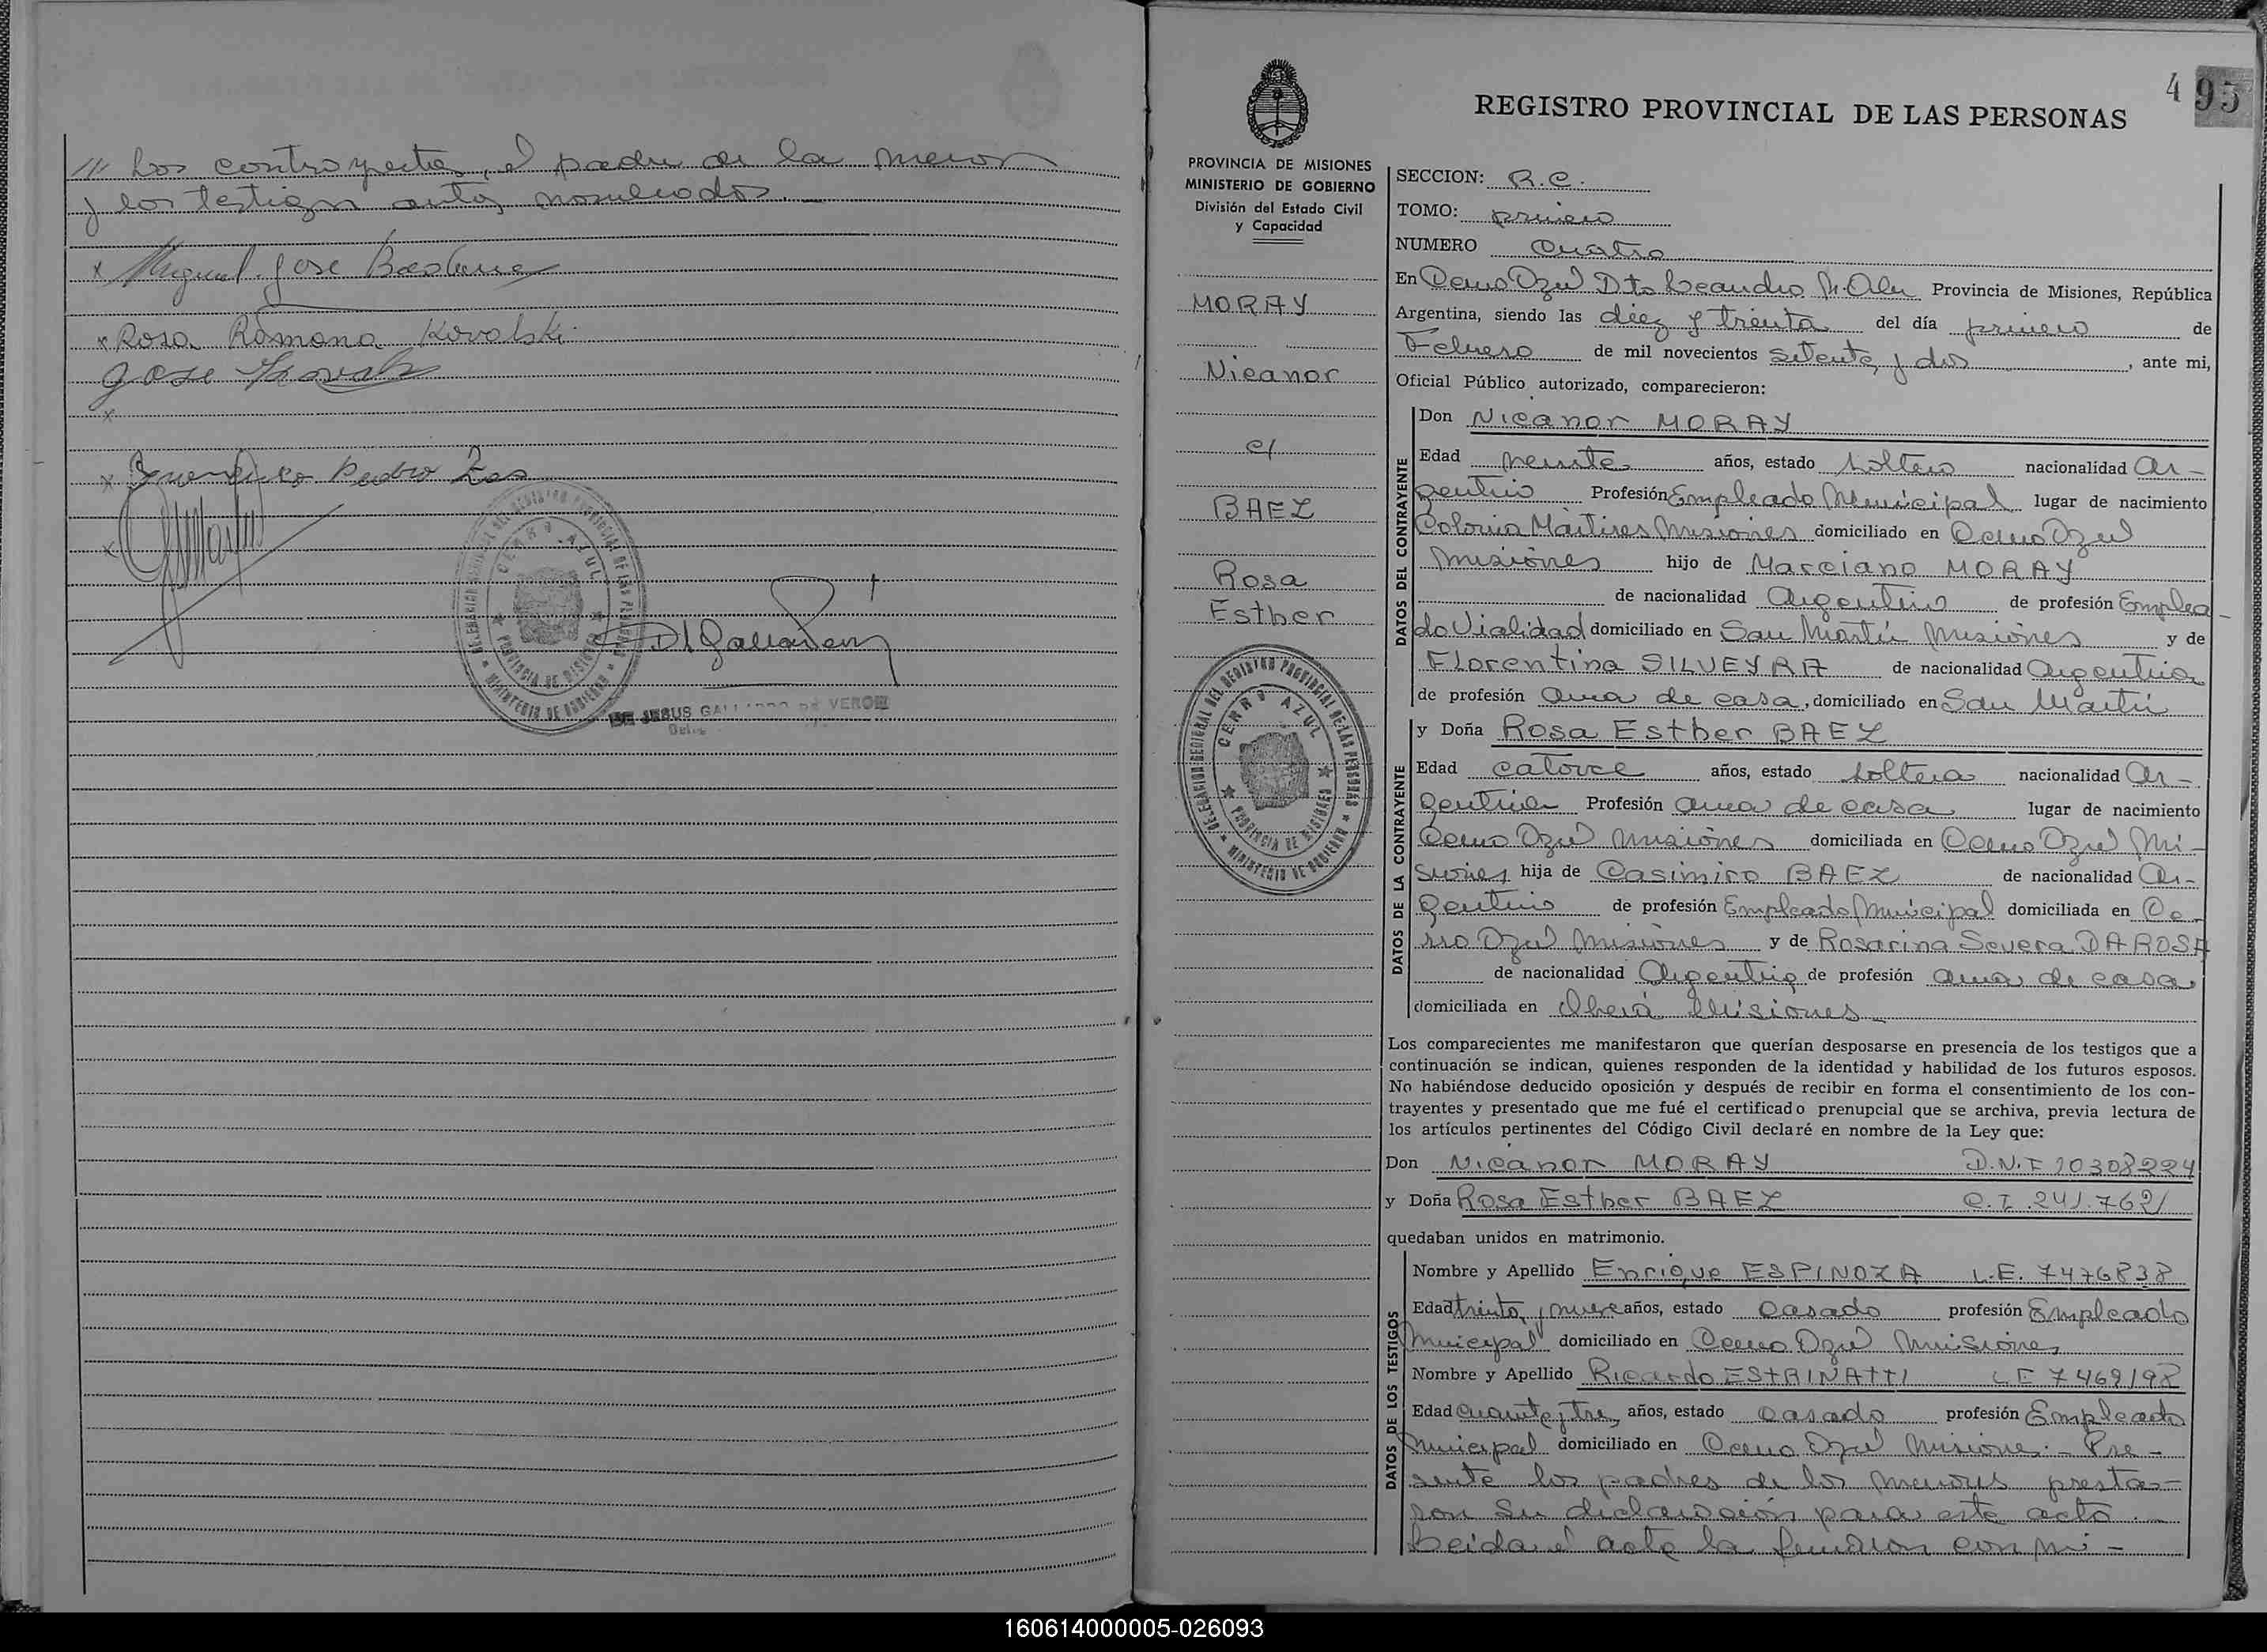 // Los contrayentes, el padre de la menor
y los testigos antes nombrados.-
x Miguel José
x Rosa Ramona Kovalski
José
x
x Pedro
x
DELEGACION GENERAL DEL REGISTRO PROVINCIAL DE LAS PERSONAS
CERRO AZUL
PROVINCIA DE MISIONES
MINISTERIO DE GOBIERNO
DE JESUS GALLARDO DE VERON
495
REGISTRO PROVINCIAL DE LAS PERSONAS
PROVINCIA DE MISIONES
MINISTERIO DE GOBIERNO
División del Estado Civil
y Capacidad
MORAY
Nicanor
c/
BAEZ
Rosa
Esther
DELEGACION GENERAL DEL REGISTRO PROVINCIAL DE LAS PERSONAS
CERRO AZUL
PROVINCIA DE MISIONES
MINISTERIO DE GOBIERNO
SECCION: R.C.
TOMO: primero
NUMERO cuatro
En Cerro Azul Dto Leandro N. Alem Provincia de Misiones, República
Argentina, siendo las diez y treinta del día primero de
Febrero de mil novecientos setenta y dos, ante mi,
Oficial Público autorizado, comparecieron:
DATOS DEL CONTRAYENTE
Don Nicanor MORAY
Edad veinte años, estado soltero nacionalidad Ar-
gentino Profesión Empleado Municipal lugar de nacimiento
Colonia Mártires Misiones domiciliado en Cerro Azul
Misiones hijo de Marciano MORAY
de nacionalidad Argentino de profesión Emplea-
do Vialidad domiciliado en San Martín Misiones y de
Florentina SILVEYRA de nacionalidad Argentina
de profesión ama de casa, domiciliado en San Martín
DATOS DE LA CONTRAYENTE
y Doña Rosa Esther BAEZ
Edad catorce años, estado soltera nacionalidad Ar-
gentina Profesión ama de casa lugar de nacimiento
Cerro Azul Misiones domiciliada en Cerro Azul Mi-
siones hija de Casimiro BAEZ de nacionalidad Ar-
gentino de profesión Empleado Municipal domiciliada en Ce-
rro Azul Misiones y de Rosarina Severa DA ROSA
de nacionalidad Argentina de profesión ama de casa
domiciliada en Oberá Misiones
Los comparecientes me manifestaron que querían desposarse en presencia de los testigos que a
continuación se indican, quienes responden de la identidad y habilidad de los futuros esposos.
No habiéndose deducido oposición y después de recibir en forma el consentimiento de los con-
trayentes y presentado que me fué el certificado prenupcial que se archiva, previa lectura de
los artículos pertinentes del Código Civil declaré en nombre de la Ley que:
Don Nicanor MORAY D.N.I 10308224
y Doña Rosa Esther BAEZ C.I. 241.762/
quedaban unidos en matrimonio.
DATOS DE LOS TESTIGOS
Nombre y Apellido Enrique ESPINOZA L.E. 7476838
Edad treinta y nueve años, estado casado profesión Empleado
Municipal domiciliado en Cerro Azul Misiones
Nombre y Apellido Ricardo ESTRINATTI LE 7469198
Edad cuarenta y tres años, estado casado profesión Empleado
Municipal domiciliado en Cerro Azul Misiones.- Pre-
sente los padres de los menores presta-
ron su declaración para este acto.-
Leida el acta la firmaron con mi-
160614000005-026093